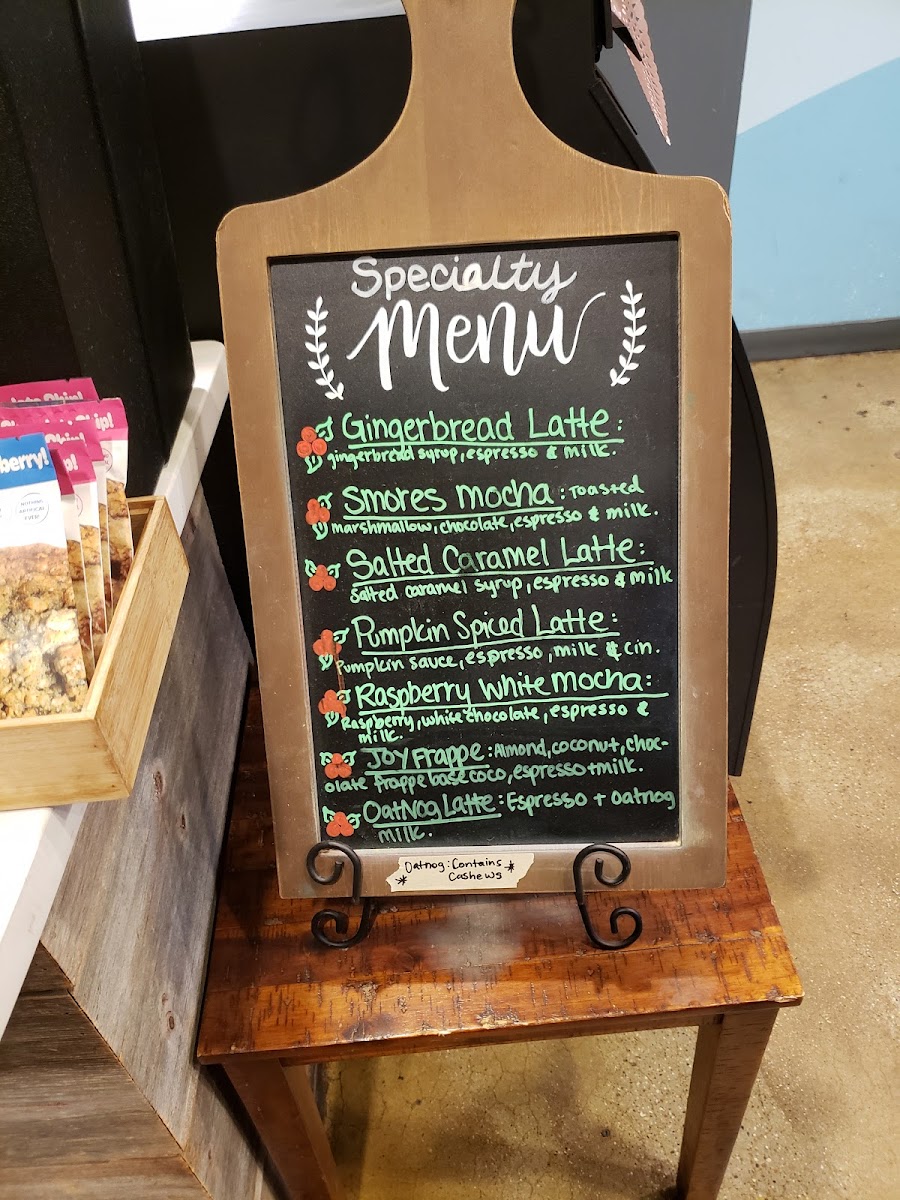 Specialty
Menu
Gingerbread Latte:
gingerbread syrup, espresso & milk.
Smores Mocha: Toasted
marshmallow, chocolate, espresso & milk.
Salted Caramel Latte:
Salted caramel syrup, espresso & milk
Pumpkin Spiced Latte:
Pumpkin sauce, espresso, milk & cin.
Raspberry White Mocha:
Raspberry, white chocolate, espresso &
milk.
Joy Frappe: Almond, coconut, choc-
olate frappe base coco, espresso + milk.
OatNog Latte: Espresso + oatnog
milk.
Oatnog: Contains
*Cashews*
Chip!
berry!
NOTHING
ARTIFICIAL
EVER